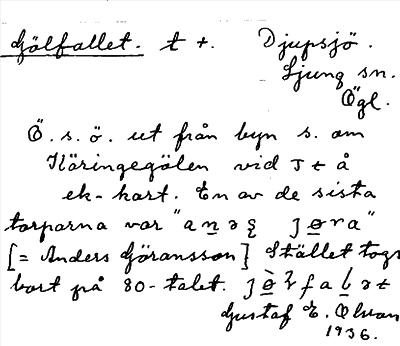 Gölfallet. t +. Djupsjö.
Ljung sn.
Ögl.
Ö. s. ö. ut från byn s. om
Käringegölen vid J t å
ek-kart. En av de sista
torparna var "anəʂ jɵra"
[= Anders Göransson] Stället togs
bort på 80-talet.
Gustaf E. Olsson
1936.